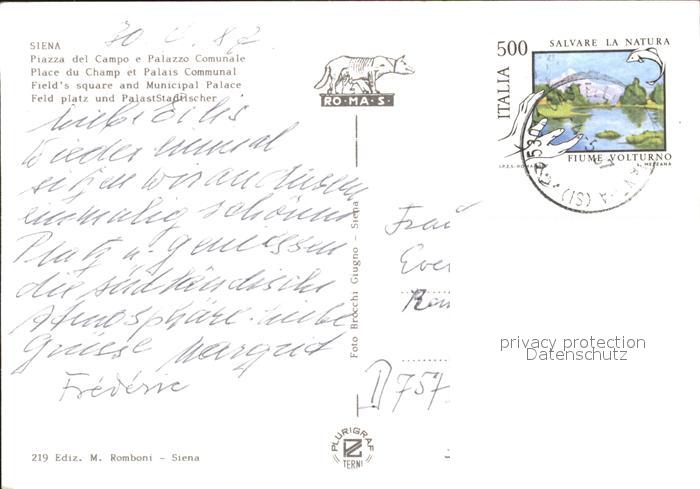 30. 4. 87
SIENA
Piazza del Campo e Palazzo Comunale
Place du Champ et Palais Communal
Field's square and Municipal Palace
Feld platz und PalastStadtischer
RO·MA·S·
500
SALVARE LA NATURA
ITALIA
FIUME VOLTURNO
I.P.Z.S.-ROMA
MEZZANA
(SI)
Wieder einmal
sitzen wir an diesem
einmalig schönen
Platz u. geniessen
die südländische
Atmosphäre. Liebe
Grüsse Margrit
Frédéric
Foto Brocchi Giugno - Siena
Frau
D 757
privacy protection
Datenschutz
219 Ediz. M. Romboni - Siena
PLURIGRAF
TERNI